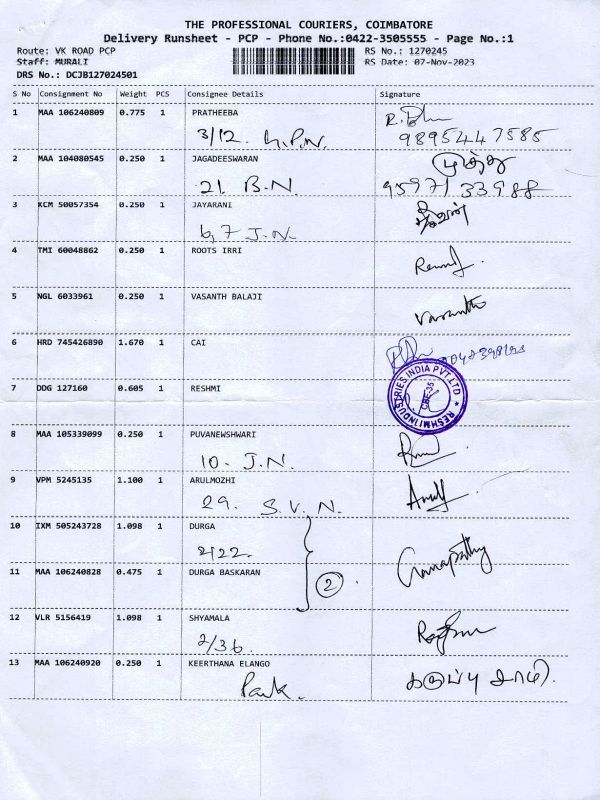 THE PROFESSIONAL COURIERS, COIMBATORE
Delivery Runsheet - PCP - Phone No.:0422-3505555 - Page No.:1
Route: VK ROAD PCP RS No.: 1270245
Staff: MURALI RS Date: 07-Nov-2023
DRS No.: DCJB127024501
S No Consignment No Weight PCS Consignee Details Signature
1 MAA 106240809 0.775 1 PRATHEEBA
3/12. K.P.N. 9895447585
2 MAA 104080545 0.250 1 JAGADEESWARAN முத்து
21. B.N. 95971 33988
3 KCM 50057354 0.250 1 JAYARANI
6,7 J.N.
4 TMI 60048862 0.250 1 ROOTS IRRI
5 NGL 6033961 0.250 1 VASANTH BALAJI
Vasanth
6 HRD 745426890 1.670 1 CAI
7 DDG 127160 0.605 1 RESHMI
RESHMI INDUSTRIES INDIA PVT LTD
CBE-35
8 MAA 105339099 0.250 1 PUVANEWSHWARI
10. J.N.
9 VPM 5245135 1.100 1 ARULMOZHI
29. S.V.N. Arul
10 IXM 505243728 1.098 1 DURGA
2/22. Ganapathy
11 MAA 106240828 0.475 1 DURGA BASKARAN
2
12 VLR 5156419 1.098 1 SHYAMALA
2/36.
13 MAA 106240920 0.250 1 KEERTHANA ELANGO
Park. கருப்பு சாமி.